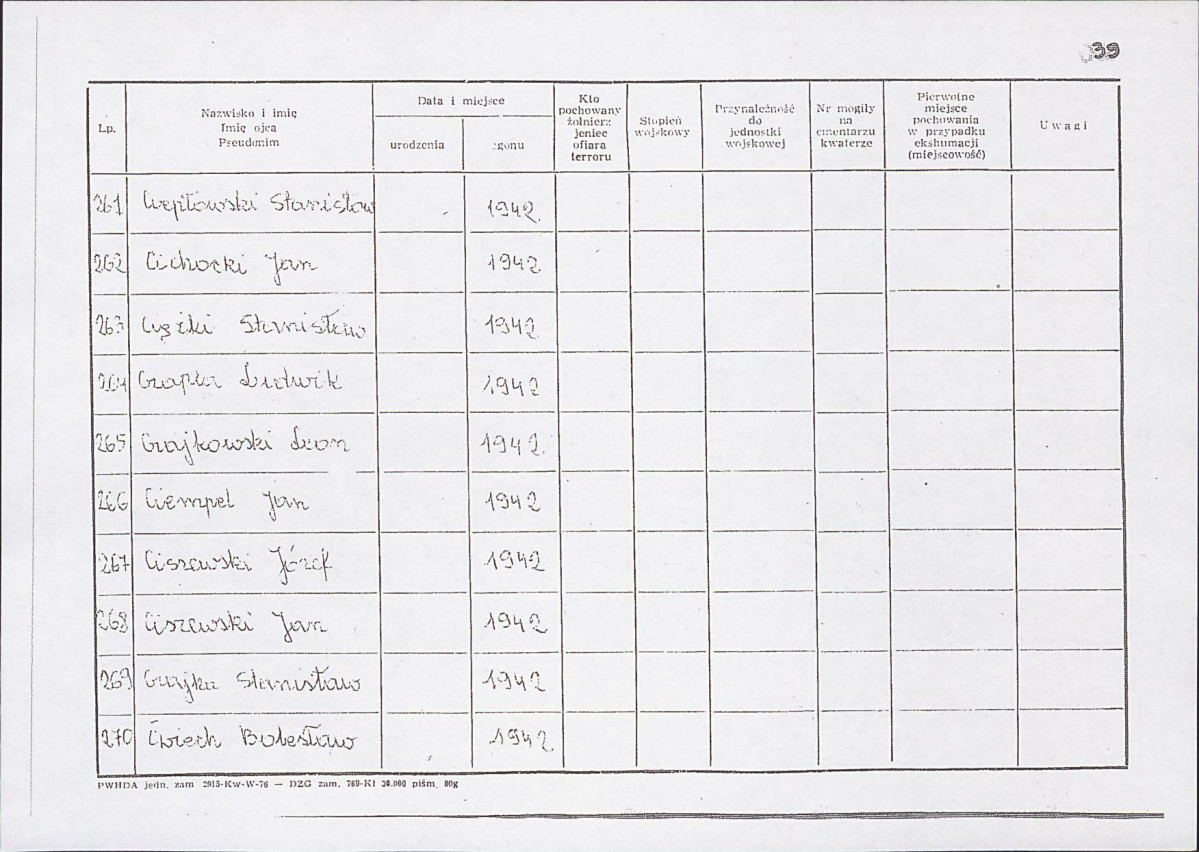 39
Lp.
Nazwisko i imię
Imię ojca
Pseudonim
Data i miejsce
urodzenia
zgonu
Kto
pochowany
żołnierz
jeniec
ofiara
terroru
Stopień
wojskowy
Przynależność
do
jednostki
wojskowej
Nr mogiły
na
cmentarzu
kwaterze
Pierwotne
miejsce
pochowania
w przypadku
ekshumacji
(miejscowość)
Uwagi
261 Stanisław 1942.
262 Cichocki Jan 1942
263 Stanisław 1942
264 Czapla Ludwik 1942
265 Czajkowski Leon 1942.
266 Ciempel Jan 1942
267 Ciszewski Józef 1942
268 Ciszewski Jan 1942
269 Czajka Stanisław 1942
270 Ćwiech Bolesław 1942
PWHDA jedn. zam 2915-Kw-W-76 — DZG zam. 769-Kl 30.000 piśm. 80g